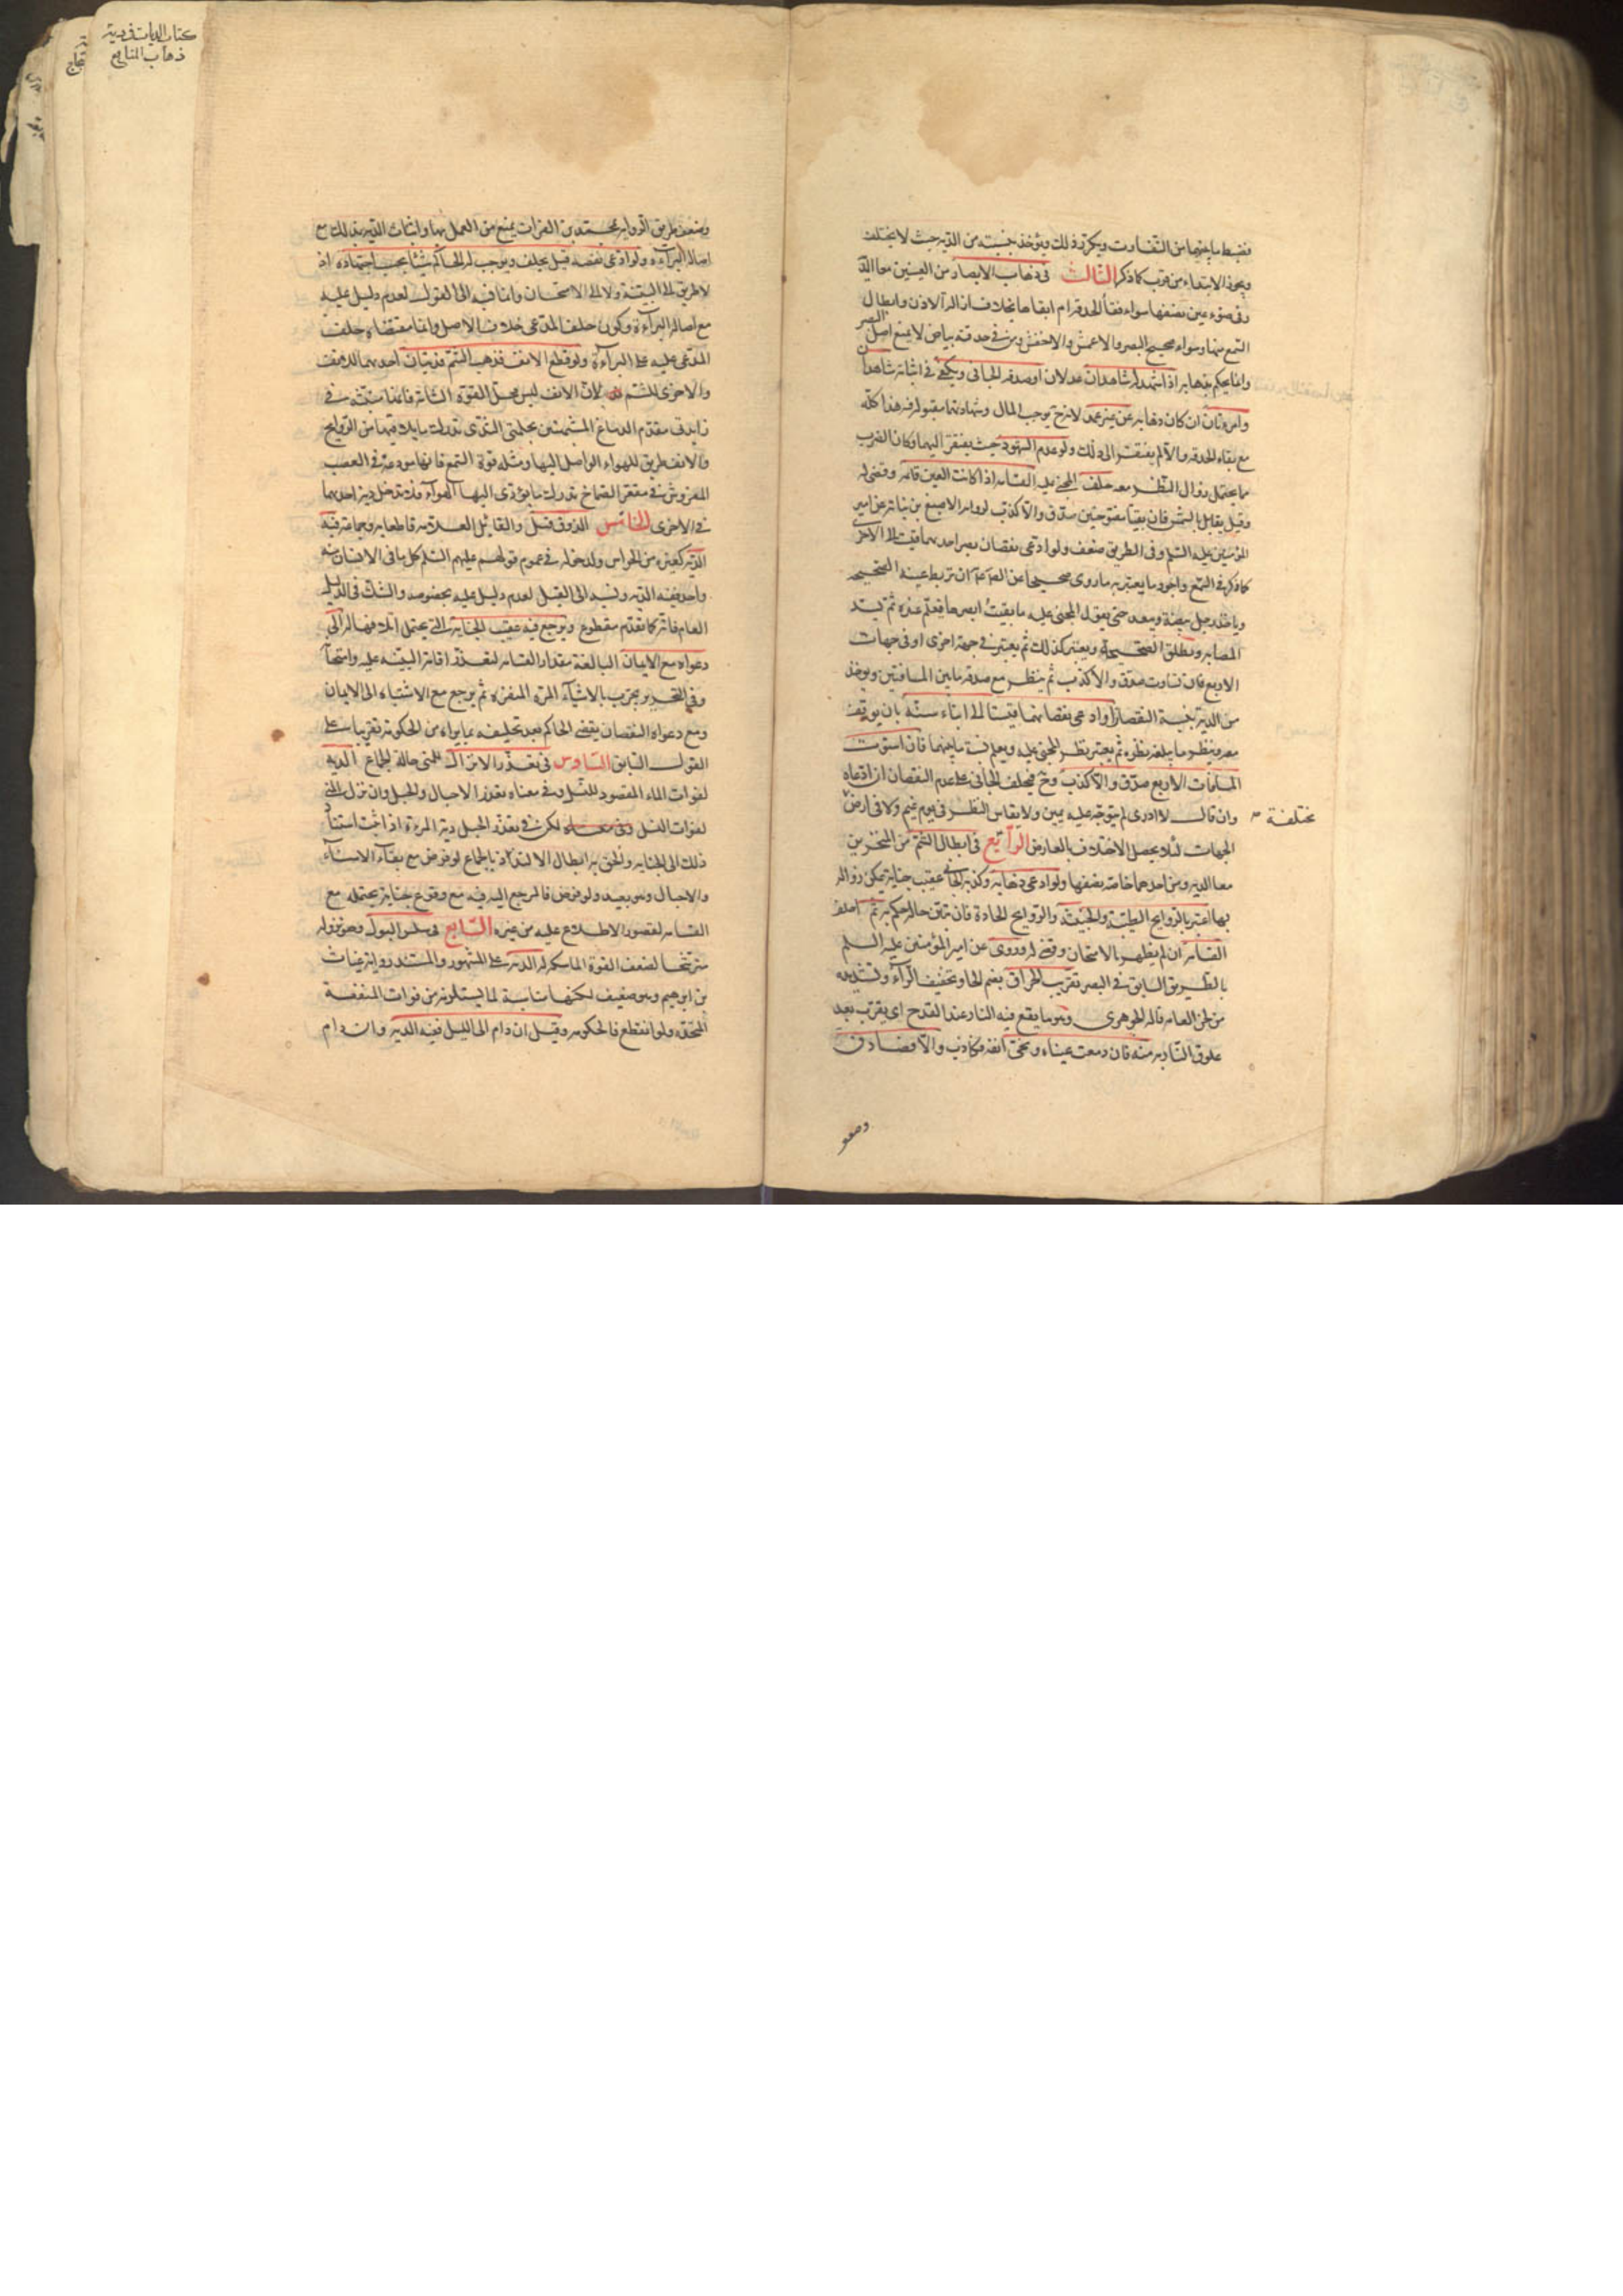 فيضبط ما بينهما من التفاوت ويكرر ذلك ويؤخذ بنسبته من الدية حيث لا يختلف
ويجوز الابتداء من قرب كما ذكر الثالث في ذهاب الابصار من العينين معا الدية
وفي ضوء كل عين نصفها سواء فقأ الحدقة ام ابقاها بخلاف ازالة الاذن وابطال
السمع منها وسواء صحيح البصر والاعمش والاخفش ومن في حدقته بياض لا يمنع اصل البصر
وانما يحكم بذهابه اذا شهد له شاهدان عدلان او صدقه الجاني ويكفي في اثباته شاهد
وامرأتان ان كان ذهابه عن غير عمد لانه مما يوجب المال وشهادتهما مقبولة فيه هذا كله
مع بقاء الحدقة والا لم يفتقر الى ذلك ولو عدم الشهود حيث يفتقر اليهما وكان الضرب
مما يحتمل زوال النظر معه حلف المجني عليه القسامة اذا كانت العين قائمة وقضي له
وقيل يقابل بالشمس فان بقيتا مفتوحتين صدق والا كذب لرواية الاصبغ بن نباتة عن امير
المؤمنين عليه السلم وفي الطريق ضعف ولو ادعى نقصان بصر احدهما قيست الى الاخرى
كما ذكر في السمع واجود ما يعتبر به ما روي صحيحا عن الصادق ان تربط عينه الصحيحة
وياخذ رجل بيضة ويبعد حتى يقول المجني عليه ما بقيت ابصرها فيعلم عنده ثم تشد
المصابة وتطلق الصحيحة ويعتبر كذلك ثم يعتبر في جهة اخرى او في جهات
الاربع فان تساوت صدق والا كذب ثم ينظر مع صدقه ما بين المسافتين ويؤخذ
من الدية بنسبة النقصان او ادعى نقصانهما قيستا الى ابناء سنه بان يوقف
معه وينظر ما يبلغه نظره ثم يعتبر نظر المجني عليه ويعلم نسبة ما بينهما فان استوت
المسافات الاربع صدق والا كذب وح فيحلف الجاني على عدم النقصان ان ادعاه
وان قال لا ادري لم يتوجه عليه يمين ولا يقاس النظر في يوم غيم ولا في ارض
مختلفة
الجهات لئلا يحصل الاختلاف بالعارض الرابع في ابطال الشم من المنخرين
معا الدية ومن احدهما خاصة نصفها ولو ادعى ذهابه وكذبه الجاني عقيب جناية يمكن زواله
بها اعتبر بالروايح الطيبة والخبيثة والروايح الحادة فان تبين حاله حكم به ثم احلف
القسامة ان لم يظهر بالامتحان وقضي له وروي عن امير المؤمنين عليه السلم
بالطريق السابق في البصر تقريب الحراق بضم الحاء وتخفيف الراء وتشديده
من لحن العامة قاله الجوهري وهو ما يقع فيه النار عند القدح اي يقرب بعد
علوق النار به منه فان دمعت عيناه ونحى انفه فكاذب والا فصادق
وضعف
كتاب الديات في دية
ذهاب المنافع
وضعف طريق الرواية بمحمد بن الفرات يمنع من العمل بها واثبات الدية بذلك مع
اصالة البراءة ولو ادعى نقصه قيل يحلف ويوجب له الحاكم شيئا بحسب اجتهاده اذ
لا طريق الى البينة ولا الى الامتحان وانما نسبه الى القول لعدم دليل عليه
مع اصالة البراءة وكون حلف المدعي خلاف الاصل وانما مقتضاه حلف
المدعى عليه على البراءة ولو قطع الانف فذهب الشم فديتان احدهما للانف
والاخرى للشم لان الانف ليس محل القوة الشامة فانها منبثة في
زايدتي مقدم الدماغ المشبهتين بحلمتي الثدي تدرك ما يلاقيها من الروايح
والانف طريق للهواء الواصل اليها ومثله قوة السمع فانها مودعة في العصب
المفروش في مقعر الصماخ تدرك ما يؤدي اليها الهواء فلا تدخل دية احدهما
في الاخرى الخامس الذوق قيل والقائل العلامة قاطعا به وجماعة فيه
الدية كغيره من الحواس ولدخوله في عموم قولهم عليهم السلم كل ما في الانسان منه
واحد ففيه الدية ونسبه الى القيل لعدم دليل عليه بخصوصه والشك في الدليل
العام فانه كما تقدم مقطوع ويرجع فيه عقيب الجناية التي يحتمل اتلافها له الى
دعواه مع الايمان البالغة مقدار القسامة لتعذر اقامة البينة عليه وامتحانه
وفي التحرير يجرب بالاشياء المرة المقزة ثم يرجع مع الاشتباه الى الايمان
ومع دعواه النقصان يقضي الحاكم بعد تحليفه بما يراه من الحكومة تقريبا على
القول السابق السادس في تعذر الانزال للمني حالة الجماع الدية
لفوات الماء المقصود للنسل وفي معناه تعذر الاحبال والحبل وان نزل المني
لفوات النسل لكن في تعذر الحبل دية المرءة اذا ثبت استناد
ذلك الى الجناية والحق به ابطال الالتذاذ بالجماع لو فرض مع بقاء الامناء
والاحبال وهو بعيد ولو فرض فالمرجع اليه فيه مع وقوع جناية يحتمله مع
القسامة لقصور الاطلاع عليه من غيره السابع في سلس البول وهو نزوله
مترشحا لضعف القوة الماسكة له الدية على المشهور والمستند رواية غياث
بن ابرهيم وهو ضعيف لكنها مناسبة لما يستلزمه من فوات المنفعة
المتحدة ولو انقطع فالحكومة وقيل ان دام الى الليل ففيه الدية وان دام